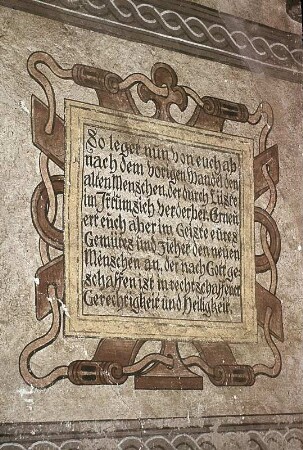 So leget nun von euch ab
nach dem vorigen Wandel den
alten Menschen, der durch Lüste
im Irrtum sich verderbet. Erneu
ert euch aber im Geiste eures
Gemütes und ziehet den neuen
Menschen an, der nach Gott ge-
schaffen ist in rechtschaffener
Gerechtigkeit und Heiligkeit.